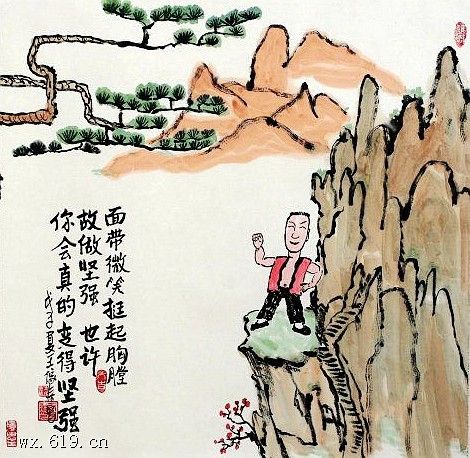 面带微笑挺起胸膛
故做坚强 也许
你会真的变得坚强
戊子夏王
wx.619.cn